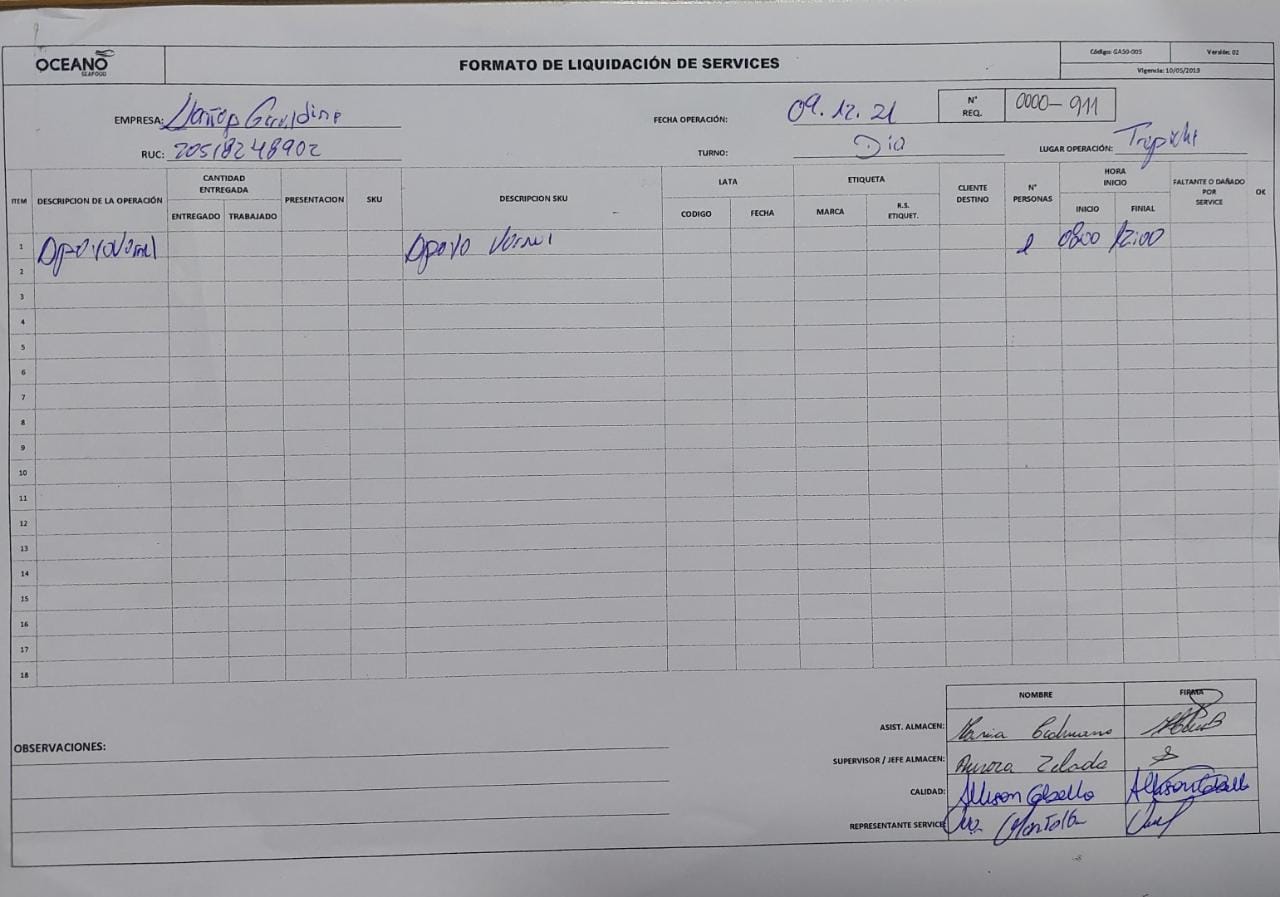 OCEANO
SEAFOOD
FORMATO DE LIQUIDACIÓN DE SERVICES
Código: GASO-005
Versión: 02
Vigencia: 10/05/2019
EMPRESA:
FECHA OPERACIÓN: 09.12.21
N° REQ. 0000-911
RUC: 20518248902
TURNO: Dia
LUGAR OPERACIÓN:
ITEM
DESCRIPCION DE LA OPERACIÓN
CANTIDAD ENTREGADA
ENTREGADO
TRABAJADO
PRESENTACION
SKU
DESCRIPCION SKU
LATA
CODIGO
FECHA
ETIQUETA
MARCA
R.S. ETIQUET.
CLIENTE DESTINO
N° PERSONAS
HORA INICIO
INICIO
FINIAL
FALTANTE O DAÑADO POR SERVICE
OK
1 Apoyo 0800 12:00
2
3
4
5
6
7
8
9
10
11
12
13
14
15
16
17
18
NOMBRE
FIRMA
OBSERVACIONES:
ASIST. ALMACEN: Maria
SUPERVISOR / JEFE ALMACEN: Aurora Zelada
CALIDAD: Allison
REPRESENTANTE SERVICE